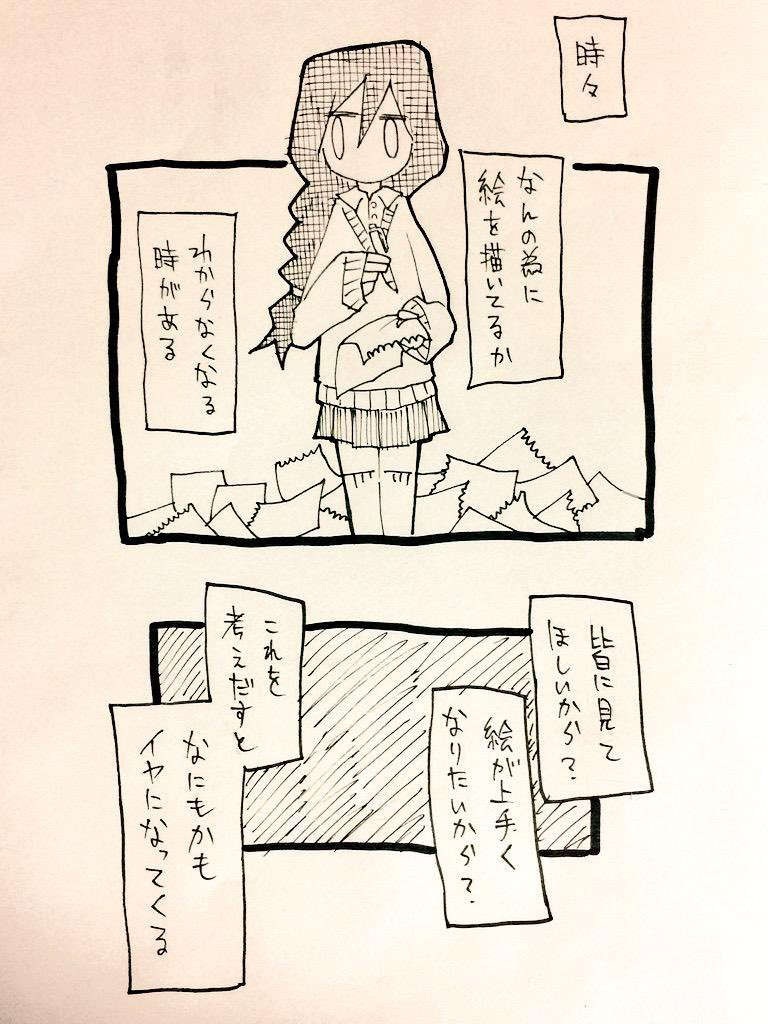 時々
なんの為に
絵を描いてるか
わからなくなる
時がある
皆に見て
ほしいから？
絵が上手く
なりたいから？
これを
考えだすと
なにもかも
イヤになってくる